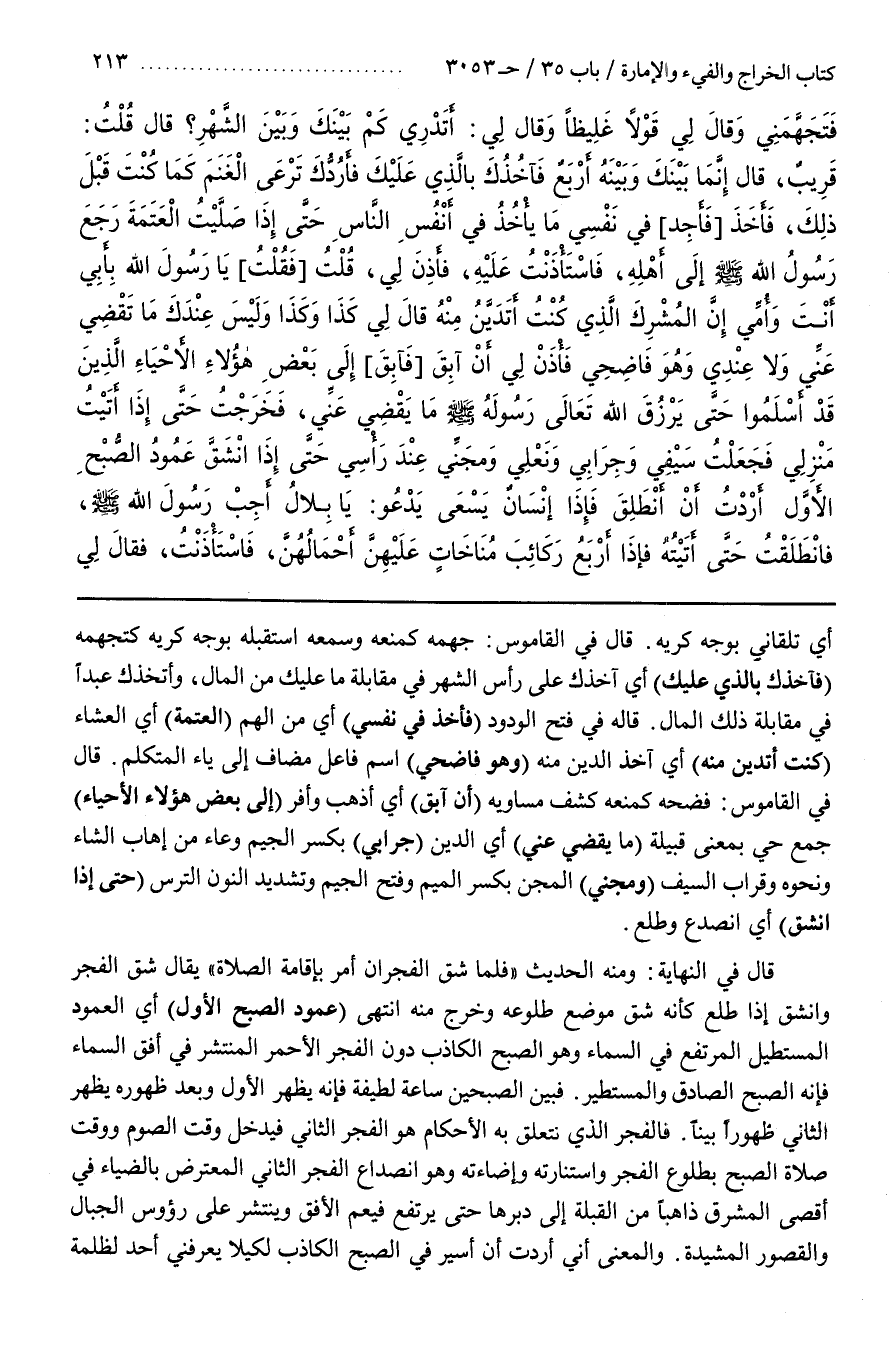 كتاب الخراج والفيء والإمارة / باب ٣٥ / حـ ٣٠٥٣ .............................. ٢١٣
فَتَجَهَّمَنِي وَقالَ لِي قَوْلًا غَلِيظاً وَقال لِي: أَتَدْرِي كَمْ بَيْنَكَ وَبَيْنَ الشَّهْرِ؟ قال قُلْتُ:
قَرِيبٌ، قال إِنَّمَا بَيْنَكَ وَبَيْنَهُ أَرْبَعٌ فَآخُذُكَ بالَّذِي عَلَيْكَ فأَرُدُّكَ تَرْعَى الْغَنَمَ كَمَا كُنْتَ قَبْلَ
ذلِكَ، فَأَخَذَ [فَأَجِد] في نَفْسِي مَا يأْخُذُ في أَنْفُسِ النَّاسِ حَتَّى إِذَا صَلَّيْتُ الْعَتَمَةَ رَجَعَ
رَسُولُ الله ﷺ إِلَى أَهْلِهِ، فَاسْتَأْذَنْتُ عَلَيْهِ، فأَذِنَ لِي، قُلْتُ [فَقُلْتُ] يَا رَسُولَ الله بِأَبِي
أَنْتَ وَأُمِّي إِنَّ المُشْرِكَ الَّذِي كُنْتُ أَتَدَيَّنُ مِنْهُ قالَ لِي كَذَا وَكَذَا وَلَيْسَ عِنْدَكَ مَا تَقْضِي
عَنِّي وَلا عِنْدِي وَهُوَ فَاضِحِي فَأْذَنْ لِي أَنْ آبِقَ [فَآبِقَ] إِلَى بَعْضِ هٰؤُلاءِ الأَحْيَاءِ الَّذِينَ
قَدْ أَسْلَمُوا حَتَّى يَرْزُقَ الله تَعَالَى رَسُولَهُ ﷺ مَا يَقْضِي عَنِّي، فَخَرَجْتُ حَتَّى إِذَا أَتَيْتُ
مَنْزِلِي فَجَعَلْتُ سَيْفِي وَجِرَابِي وَنَعْلِي وَمِجَنِّي عِنْدَ رَأْسِي حَتَّى إِذَا انْشَقَّ عَمُودُ الصُّبْحِ
الأَوَّل أَرَدْتُ أَنْ أَنْطَلِقَ فَإِذَا إِنْسَانٌ يَسْعَى يَدْعُو: يَا بِلالُ أَجِبْ رَسُولَ الله ﷺ،
فانْطَلَقْتُ حَتَّى أَتَيْتُهُ فإذَا أَرْبَعُ رَكَائِبَ مُنَاخَاتٍ عَلَيْهِنَّ أَحْمَالُهُنَّ، فَاسْتَأْذَنْتُ، فقالَ لِي
أي تلقاني بوجه كريه. قال في القاموس: جهمه كمنعه وسمعه استقبله بوجه كريه كتجهمه
(فآخذك بالذي عليك) أي آخذك على رأس الشهر في مقابلة ما عليك من المال، وأتخذك عبداً
في مقابلة ذلك المال. قاله في فتح الودود (فأخذ في نفسي) أي من الهم (العتمة) أي العشاء
(كنت أتدين منه) أي آخذ الدين منه (وهو فاضحي) اسم فاعل مضاف إلى ياء المتكلم. قال
في القاموس: فضحه كمنعه كشف مساويه (أن آبق) أي أذهب وأفر (إلى بعض هؤلاء الأحياء)
جمع حي بمعنى قبيلة (ما يقضي عني) أي الدين (جرابي) بكسر الجيم وعاء من إهاب الشاء
ونحوه وقراب السيف (ومجني) المجن بكسر الميم وفتح الجيم وتشديد النون الترس (حتى إذا
انشق) أي انصدع وطلع.
قال في النهاية: ومنه الحديث «فلما شق الفجران أمر بإقامة الصلاة» يقال شق الفجر
وانشق إذا طلع كأنه شق موضع طلوعه وخرج منه انتهى (عمود الصبح الأول) أي العمود
المستطيل المرتفع في السماء وهو الصبح الكاذب دون الفجر الأحمر المنتشر في أفق السماء
فإنه الصبح الصادق والمستطير. فبين الصبحين ساعة لطيفة فإنه يظهر الأول وبعد ظهوره يظهر
الثاني ظُهوراً بيناً. فالفجر الذي نتعلق به الأحكام هو الفجر الثاني فيدخل وقت الصوم ووقت
صلاة الصبح بطلوع الفجر واستنارته وإضاءته وهو انصداع الفجر الثاني المعترض بالضياء في
أقصى المشرق ذاهباً من القبلة إلى دبرها حتى يرتفع فيعم الأفق وينتشر على رؤوس الجبال
والقصور المشيدة. والمعنى أني أردت أن أسير في الصبح الكاذب لكيلا يعرفني أحد لظلمة